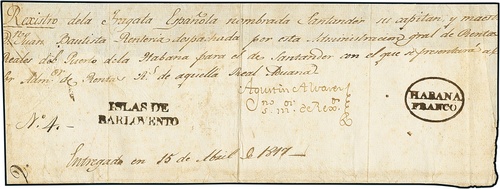 Registro dela Fragata Española nombrada Santander su capitan y maest
Dn Juan Bautista Renteria despachada por esta Administracion gral de Rentas
Reales del Puerto dela Habana para el de Santander con el que se presentará al
Sr Admor de Rentas Rs de aquella Real Aduana
Agustin Alvarez
HABANA
FRANCO
ISLAS DE
BARLOVENTO
No. 4.
Entregado en 15 de Abril de 1817